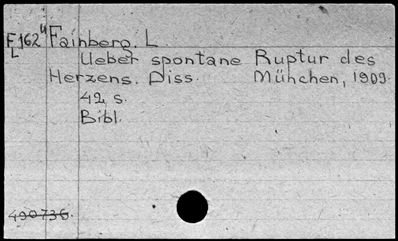 F162⁴ Fainberg. L
L
Ueber spontane Ruptur des
Herzens. Diss. München, 1909.
42 s.
Bibl.
490736.